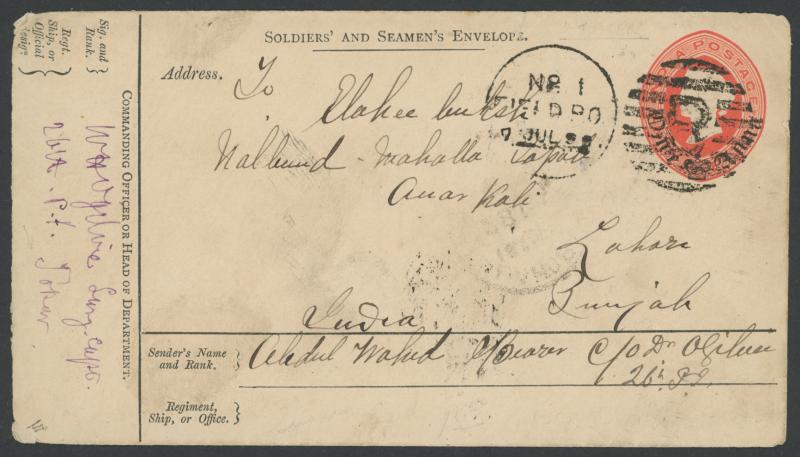 SOLDIERS' AND SEAMEN'S ENVELOPE.
Sig. and Rank.
Regt. Ship, or Official desigⁿ.
COMMANDING OFFICER OR HEAD OF DEPARTMENT.
26th P.I.
Address.
To
Elahee buksh
Nalbund Mahalla Topau
Anar Kali
Lahore
Punjab
India
INDIA POSTAGE
Nº 1
FIELD P.O.
7 JUL 99
Sender's Name and Rank.
Abdul Wahid Bearer C/O Dr Ogilvie
26th P.I.
Regiment, Ship, or Office.